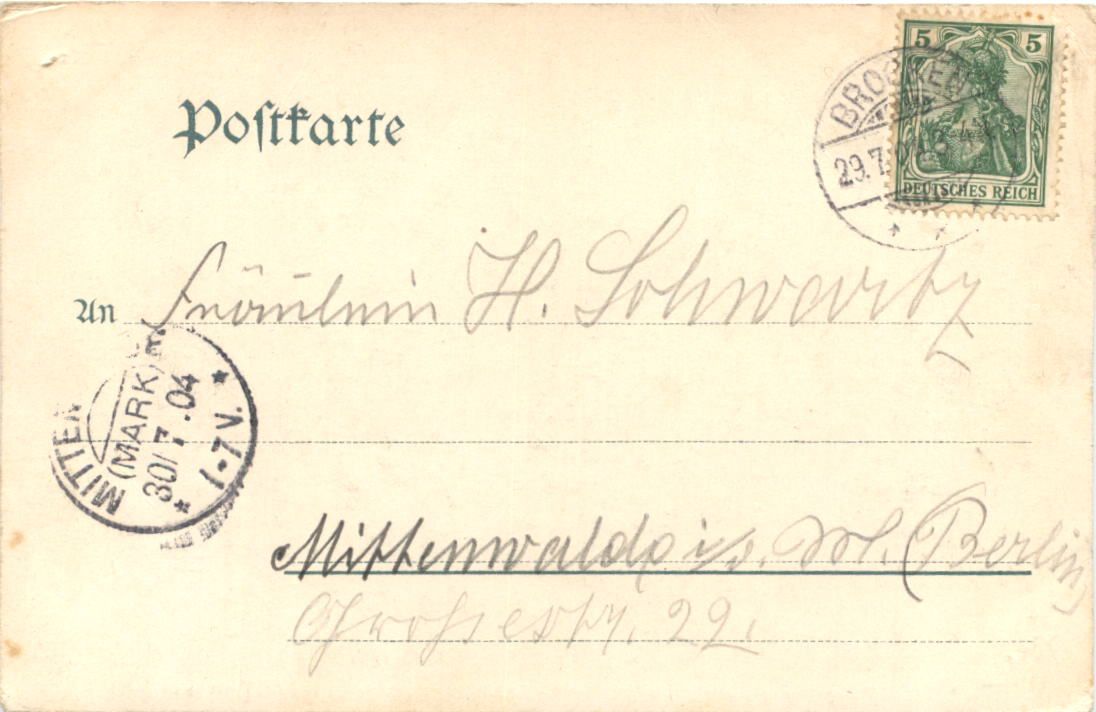 5 5
DEUTSCHES REICH
BROCKEN
29.7.
Postkarte
An Fräulein H. Schwartz
MITTEN
(MARK)
30/7.04
* 1-7 V. *
Mittenwalde i. d. M. (Berlin)
Großestr. 22.